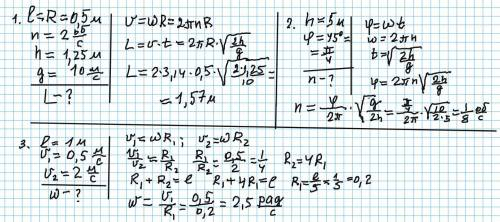 1. l=R=0,5м
n=2 об/с
h=1,25м
g=10 м/с
L-?
v=ωR=2πnR
L=v·t=2πR·√(2h/g)
L=2·3,14·0,5·√(2·1,25/10)=
=1,57м
2. h=5м
φ=45°=
=π/4
n-?
φ=ωt
ω=2πn
t=√(2h/g)
φ=2πn√(2h/g)
n=φ/2π·√(g/2h)=π/4/2π·√(10/2·5)=1/8 об/с
3. l=1м
v₁=0,5 м/с
v₂=2 м/с
ω-?
v₁=ωR₁; v₂=ωR₂
v₁/v₂=R₁/R₂ R₁/R₂=0,5/2=1/4 R₂=4R₁
R₁+R₂=l R₁+4R₁=l R₁=l/5=1/5=0,2
ω=v₁/R₁=0,5/0,2=2,5 рад/с